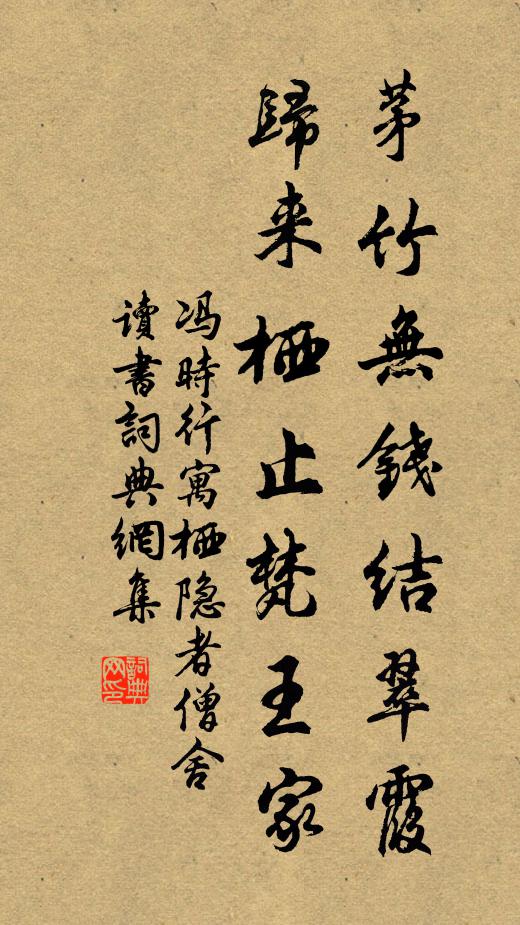 茅竹無錢結翠霞
歸来栖止梵王家
冯時行寓栖隐者僧舍
讀書詞典網集
詞典网印